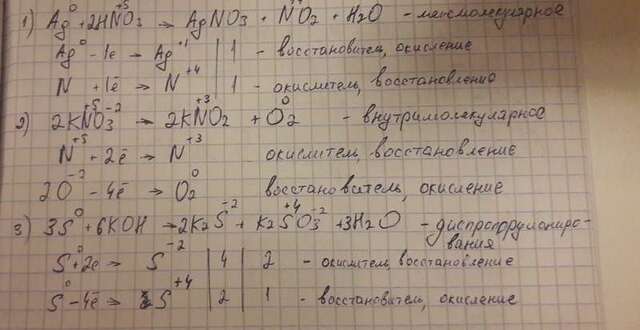 1) Ag⁰ + 2HN⁺⁵O₃ → AgNO₃ + N⁺⁴O₂ + H₂O - межмолекулярное
Ag⁰ - 1e → Ag⁺¹ | 1 - восстановитель, окисление
N + 1ē → N⁺⁴ | 1 - окислитель, восстановление
2) 2KN⁺⁵O₃⁻² → 2KN⁺³O₂ + O₂⁰ - внутримолекулярное
N⁺⁵ + 2ē → N⁺³ окислитель, восстановление
2O⁻² - 4ē → O₂⁰ восстановитель, окисление
3) 3S⁰ + 6KOH → 2K₂S⁻² + K₂S⁺⁴O₃⁻² + 3H₂O - диспропорциониро-
вания
S⁰ + 2e → S⁻² | 4 | 2 - окислитель, восстановление
S⁰ - 4ē → S⁺⁴ | 2 | 1 - восстановитель, окисление